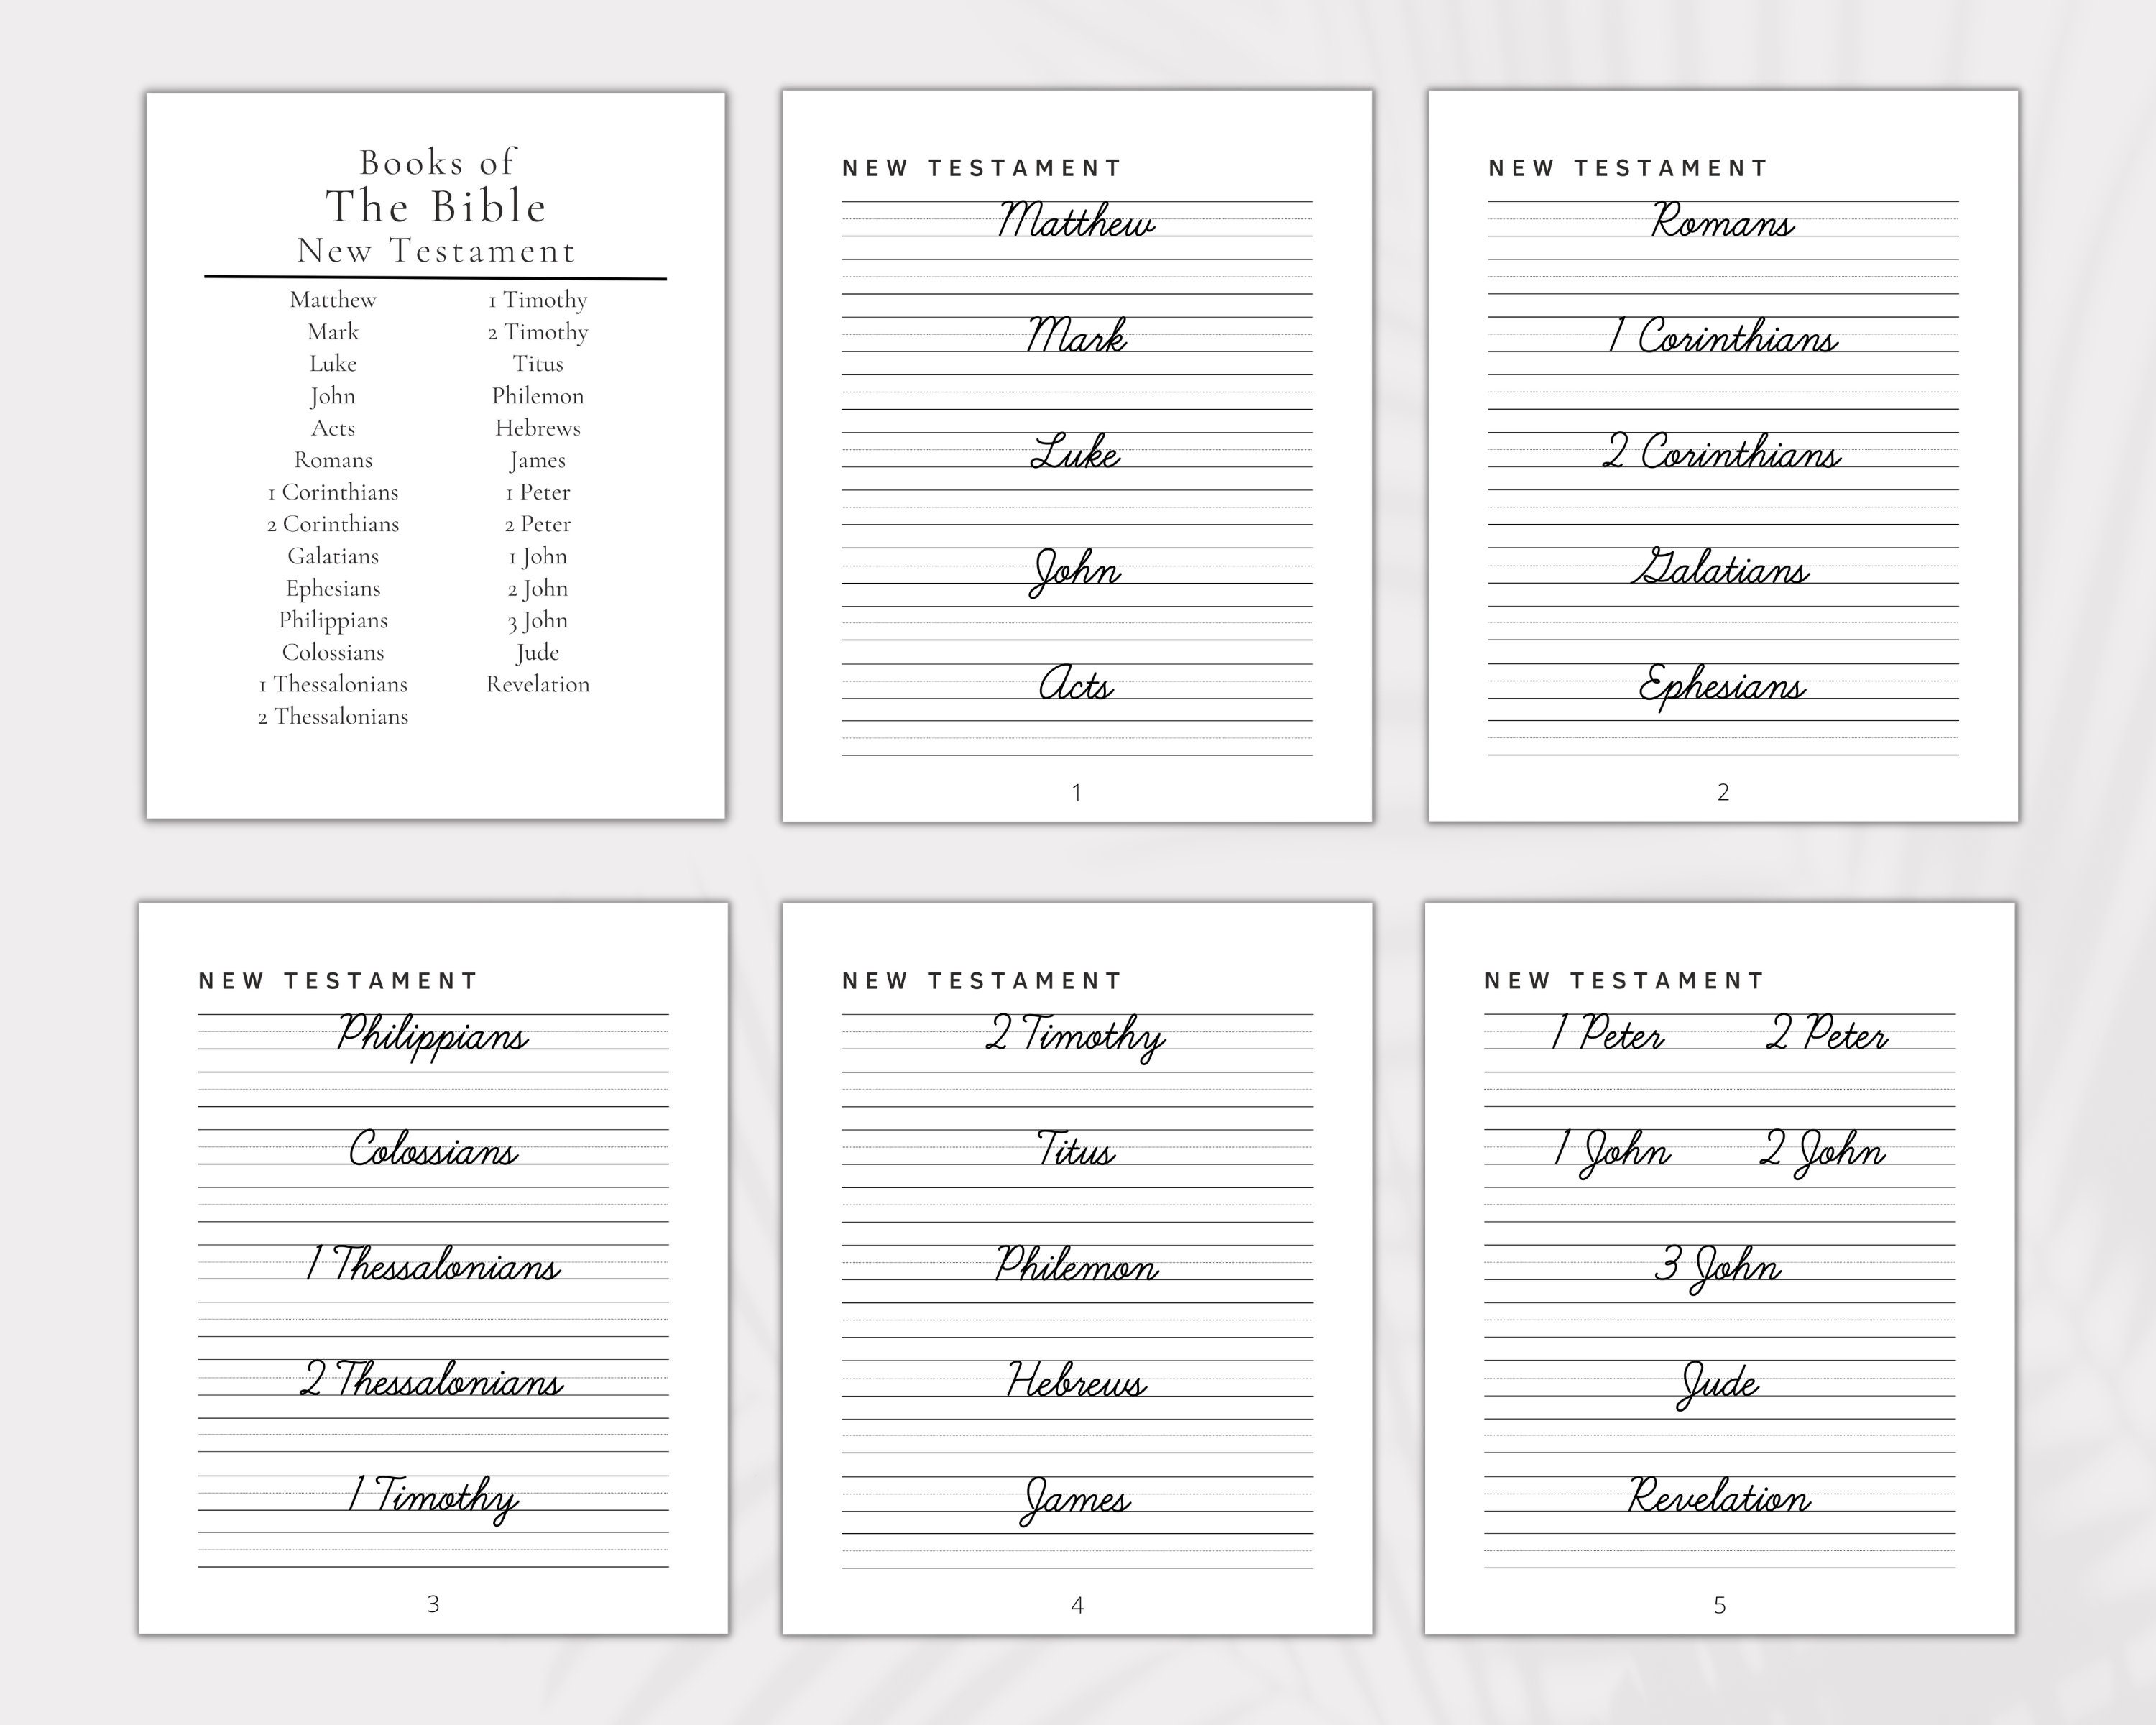 Books of
The Bible
New Testament
Matthew
Mark
Luke
John
Acts
Romans
1 Corinthians
2 Corinthians
Galatians
Ephesians
Philippians
Colossians
1 Thessalonians
2 Thessalonians
1 Timothy
2 Timothy
Titus
Philemon
Hebrews
James
1 Peter
2 Peter
1 John
2 John
3 John
Jude
Revelation
NEW TESTAMENT
Matthew
Mark
Luke
John
Acts
1
NEW TESTAMENT
Romans
1 Corinthians
2 Corinthians
Galatians
Ephesians
2
NEW TESTAMENT
Philippians
Colossians
1 Thessalonians
2 Thessalonians
1 Timothy
3
NEW TESTAMENT
2 Timothy
Titus
Philemon
Hebrews
James
4
NEW TESTAMENT
1 Peter 2 Peter
1 John 2 John
3 John
Jude
Revelation
5